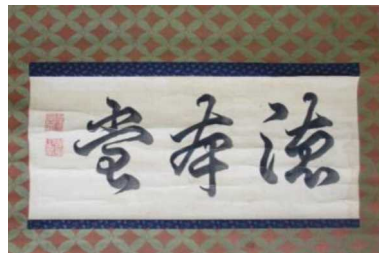 德本堂